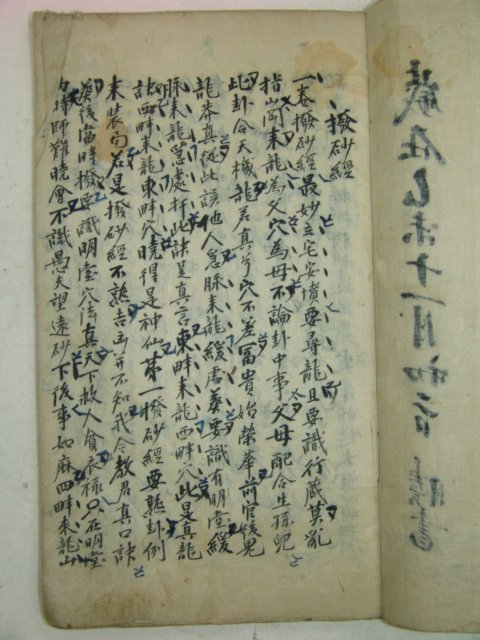 撥砂經
一卷撥砂經最妙立宅安墳要尋龍且要識行藏莫亂
指崗來龍為父穴為母不論卦中事父母配合生孫兒
此卦合天機龍君真穴不差富貴始榮華前官後鬼
龍本真從此誤他人急脉來龍緩處葬要識有明堂緩
脉來龍急處扦此訣是真言東畔來龍西畔穴此是真龍
訣西畔來龍東畔穴曉得是神仙第一撥砂經要熟卦例
來裝句若是撥砂經不熟吉凶并不知我今教君真口訣
葬後當時撥要識明堂穴法真天下救人貧衣祿只在明堂
內時師難曉會不識愚天望遠砂下後事如麻四畔來龍山
歲在乙未十一月初